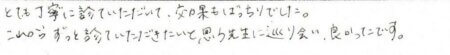 とても丁寧に診ていただいて、効果もばっちりでした。
これからずっと診ていただきたいと思う先生に巡り会い、良かったです。